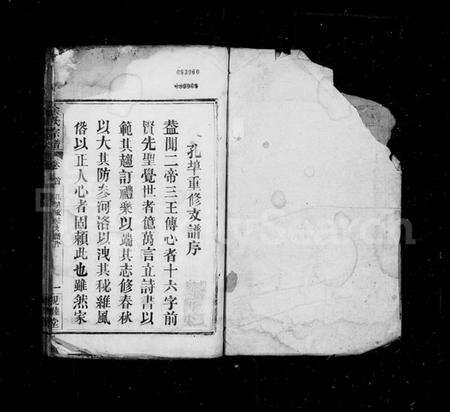 093060
孔埠重修支譜序
蓋聞二帝三王傳心者十六字前
賢先聖覺世者億萬言立詩書以
範其趨訂禮樂以端其志修春秋
以大其防參河洛以洩其秘維風
俗以正人心者固賴此也雖然家